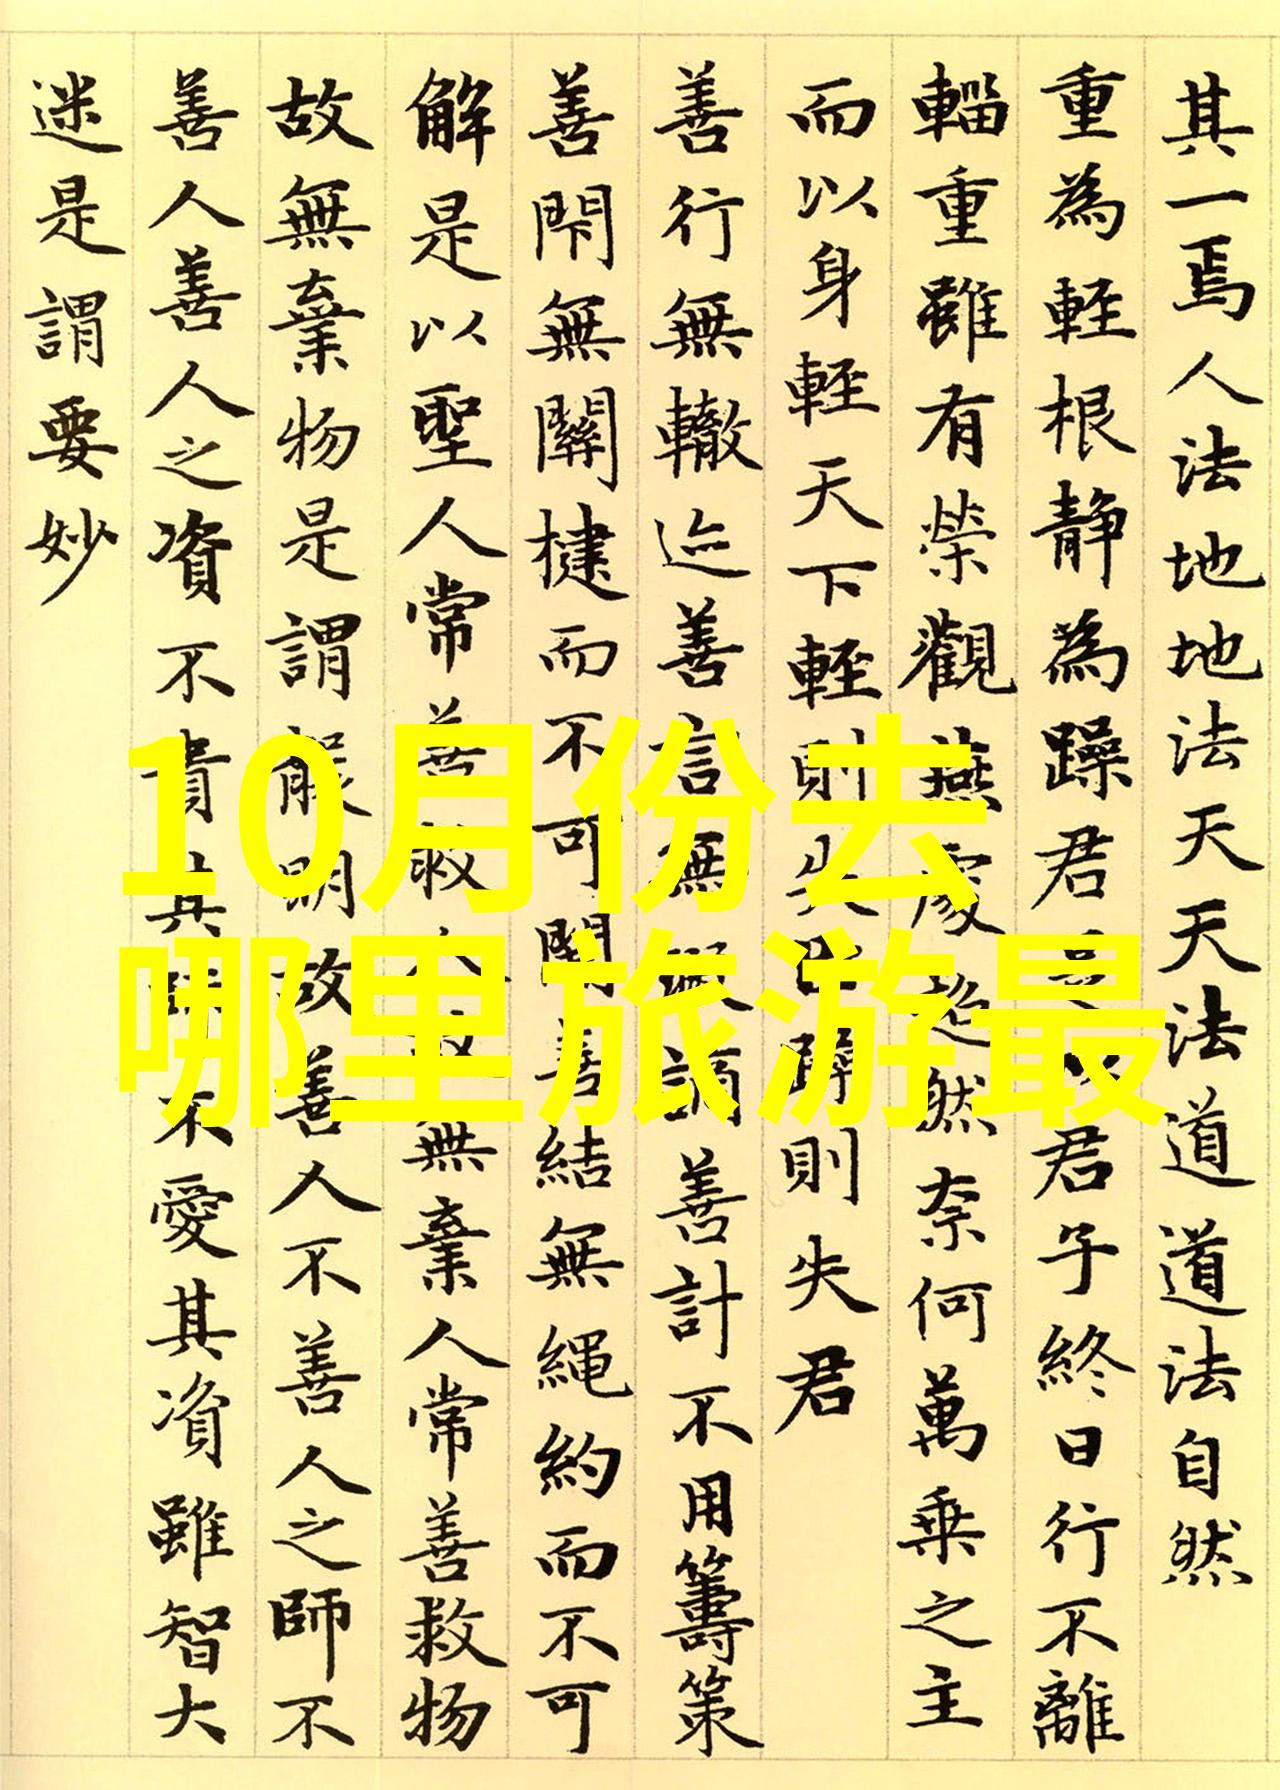 其一焉人法地地法天天法道道法自然
重為輕根静為躁君是以君子終日行不離
輜重雖有榮觀燕處超然奈何萬乗之主
而以身輕天下輕則失臣躁則失君
善行無轍迹善言無瑕謫善計不用籌策
善閇無關楗而不可開善結無繩約而不可
解是以聖人常善救人故無棄人常善救物
故無棄物是謂襲明故善人不善人之師不
善人善人之資不貴其師不愛其資雖智大
迷是謂要妙
10月份去
哪里旅游最